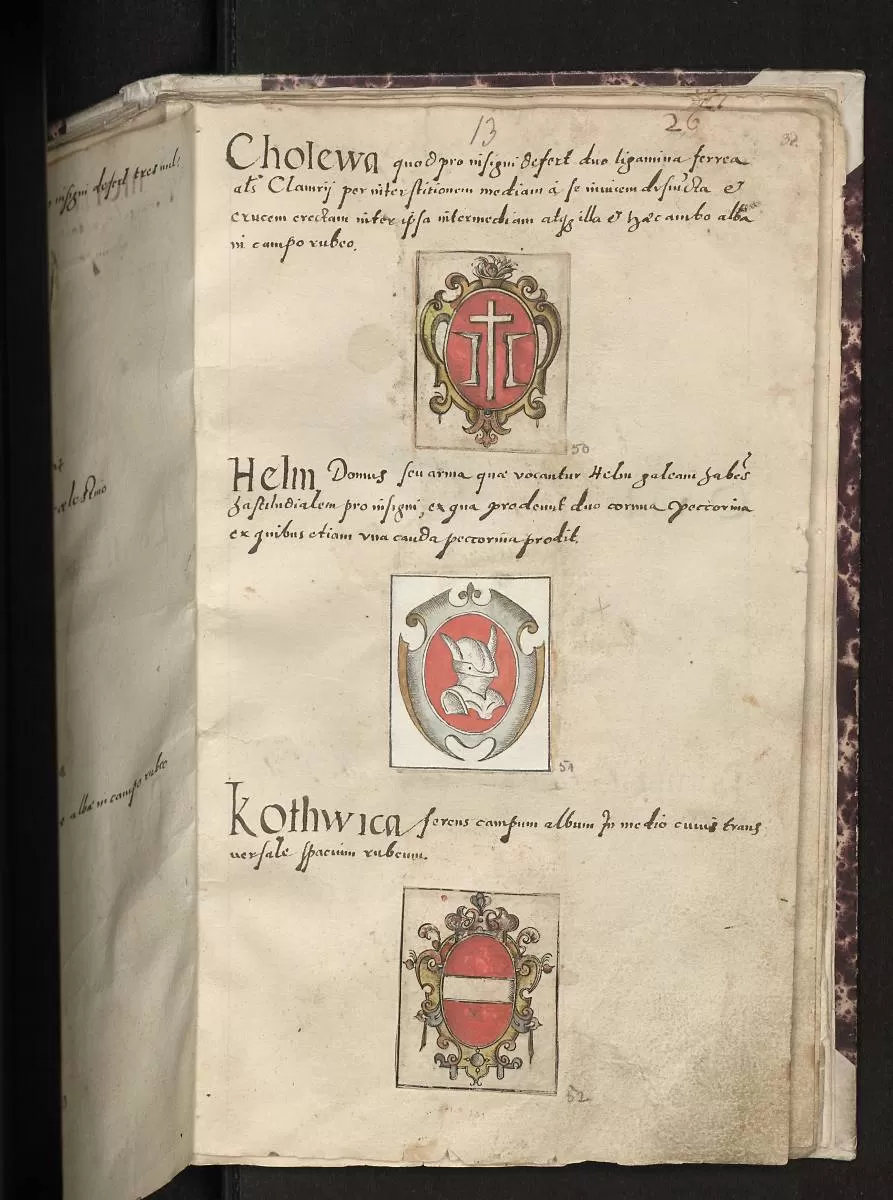 13
26
32.
Cholewa quod pro insigni defert duo ligamina ferrea
als Clamrij per interstitionem mediam à se invicem disiucta &
crucem erectam inter ipsa intermediam atq illa & hæc ambo alba
in campo rubeo.
50
Helm Domus seu arma quæ vocantur Helm galeam habes
hastiludialem pro insigni, ex qua prodeunt duo cornua peccorina
ex quibus etiam vna cauda peccorina prodit.
51
Kothwica ferens campum album In medio cuius trans
versale spacium rubeum.
52
insigni defert tres
albæ in campo rubeo